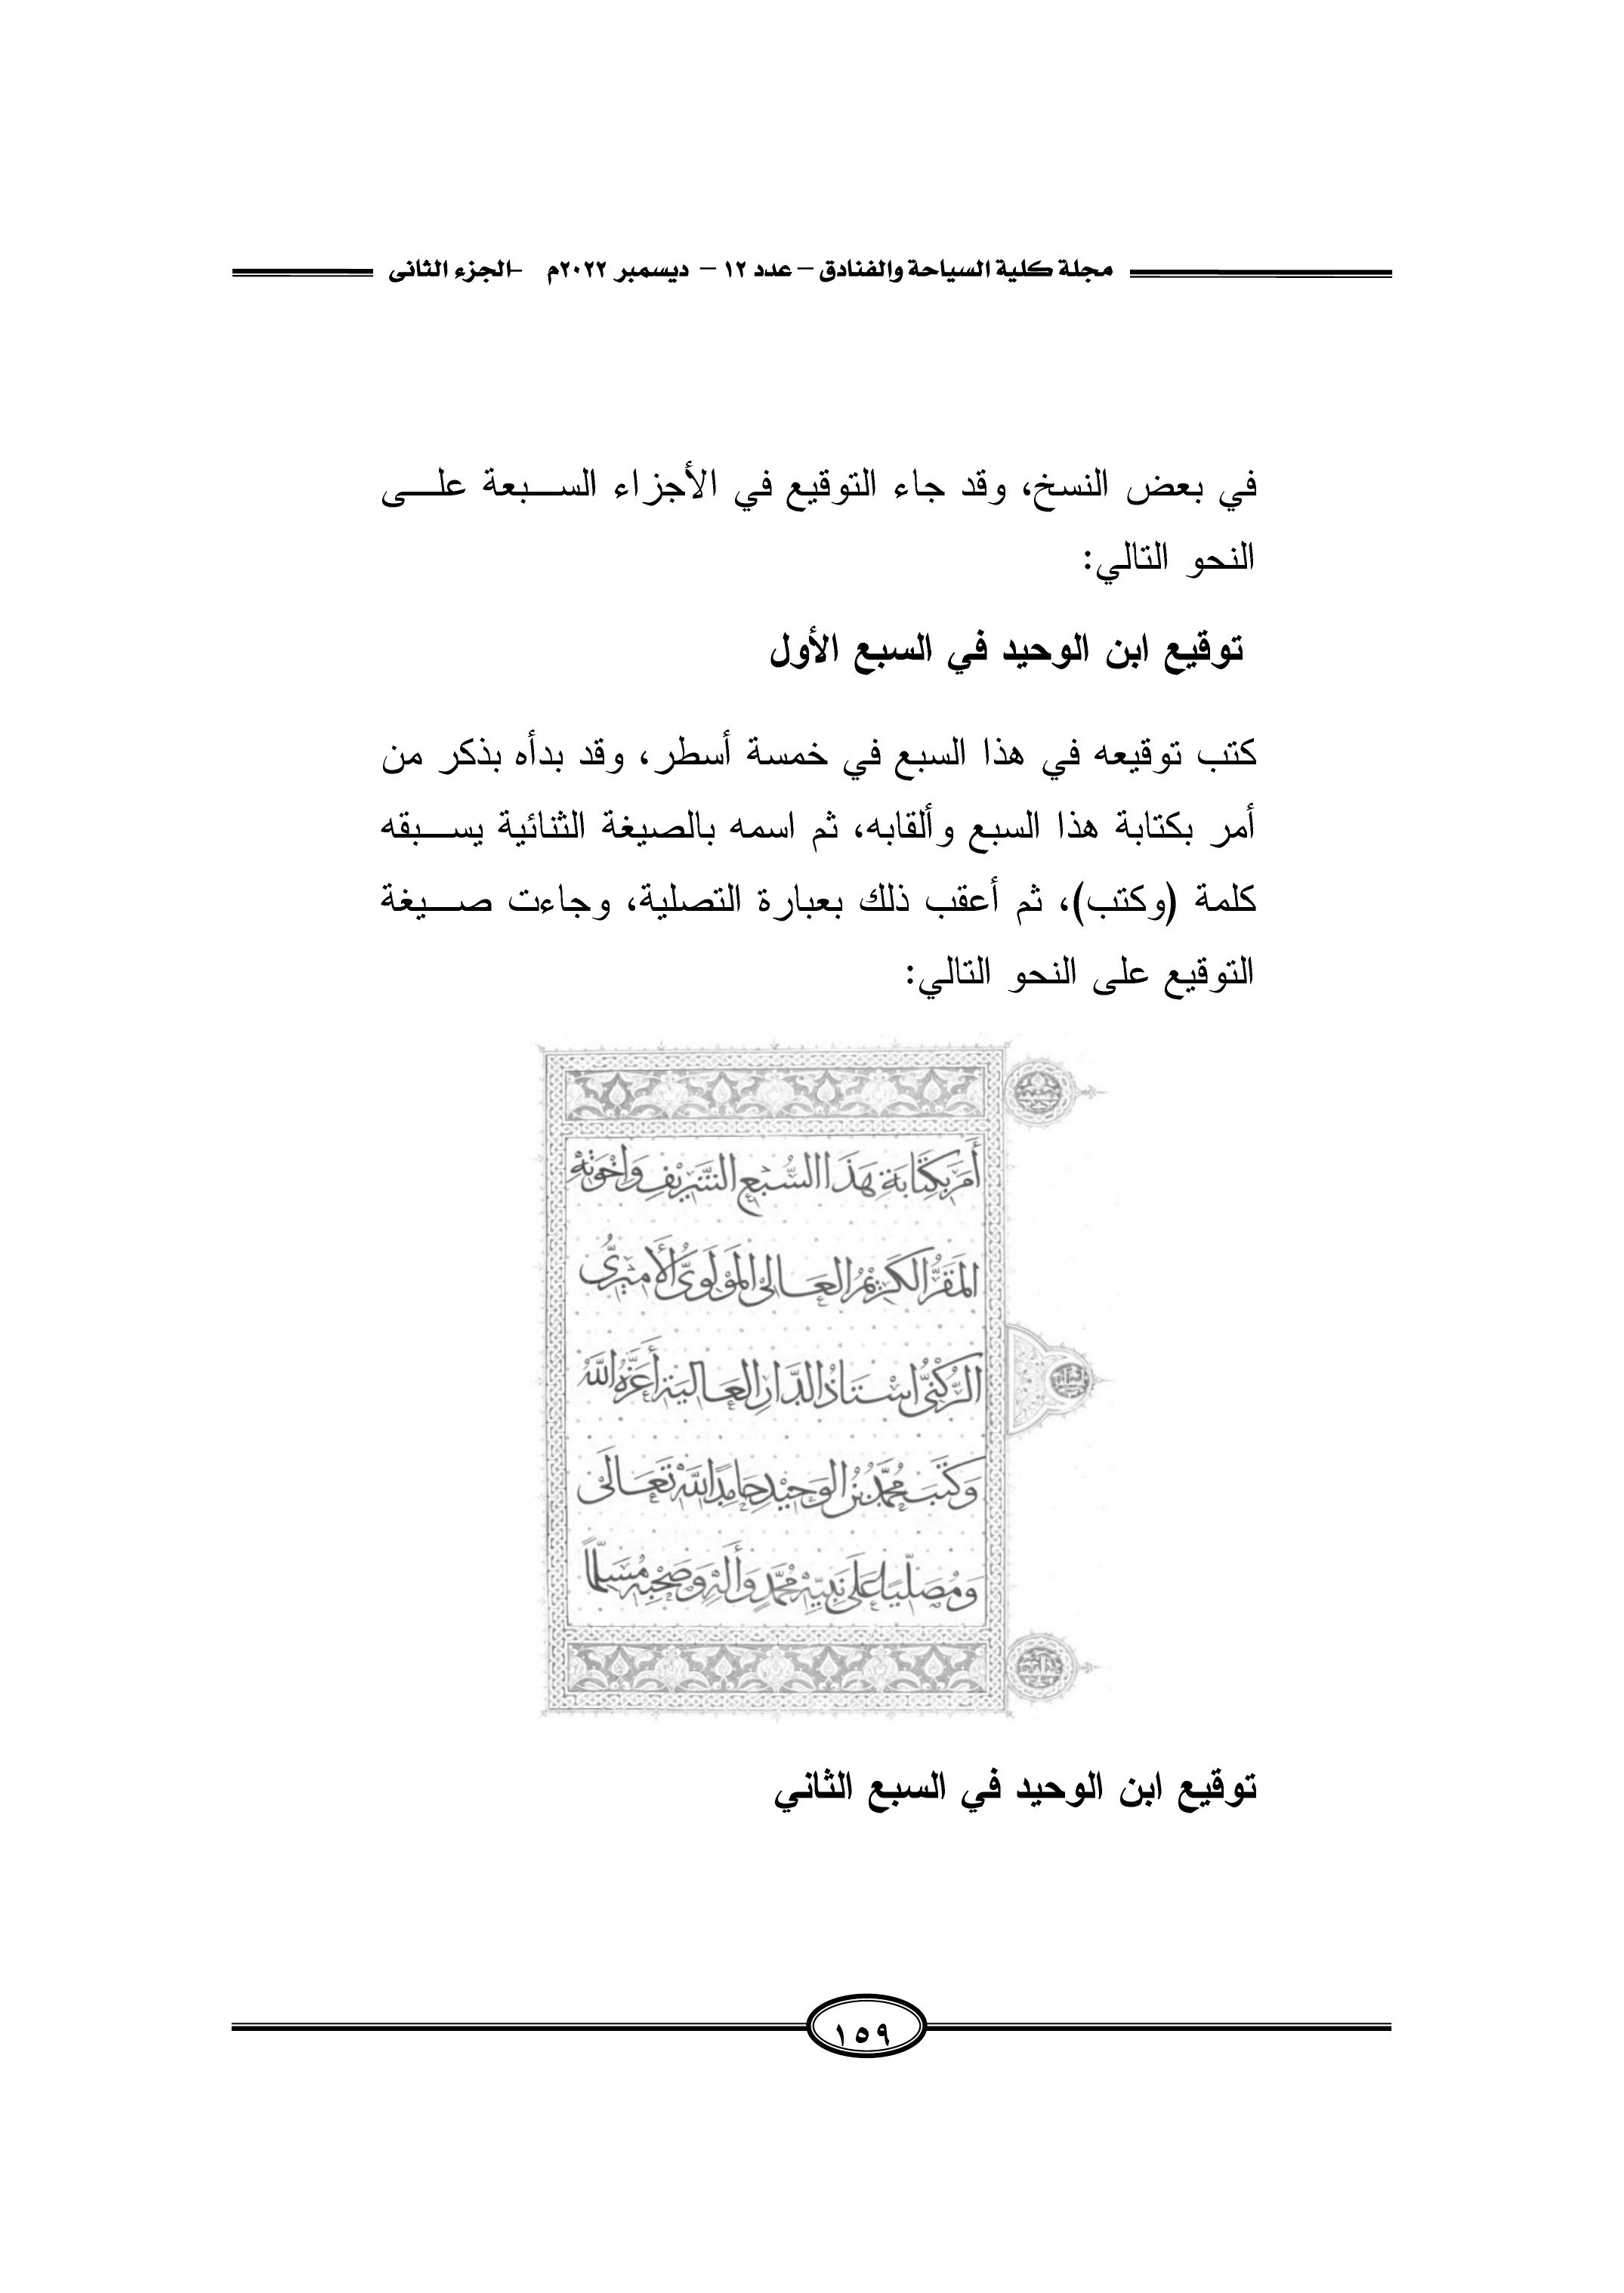 مجلة كلية السياحة والفنادق – عدد ١٢ – ديسمبر ٢٠٢٢م -الجزء الثانى
في بعض النسخ، وقد جاء التوقيع في الأجزاء السبعة على
النحو التالي:
توقيع ابن الوحيد في السبع الأول
كتب توقيعه في هذا السبع في خمسة أسطر، وقد بدأه بذكر من
أمر بكتابة هذا السبع وألقابه، ثم اسمه بالصيغة الثنائية يسبقه
كلمة (وكتب)، ثم أعقب ذلك بعبارة التصلية، وجاءت صيغة
التوقيع على النحو التالي:
أَمَرَ بِكِتَابَةِ هَذَا السُّبْعِ الشَّرِيْفِ وَاِخْوَتِهِ
المَقَرُّ الكَرِيْمُ العَالِىْ المَوْلَوِىُّ الأَمِيْرِىُّ
الرُّكْنِىُّ اسْتَاذُ الدَّارِ العَالِيَةِ أَعَزَّهُ اللَّهُ
وَكَتَبَ مُحَمَّدُ بْنُ الوَحِيْدِ حَامِدًا للَّهِ تَعَالَىْ
وَمُصَلِّيًا عَلَى نَبِيِّهِ مُحَمَّدٍ وَأَلِهِ وَصَحْبِهِ مُسَلِّمًا
توقيع ابن الوحيد في السبع الثاني
١٥٩